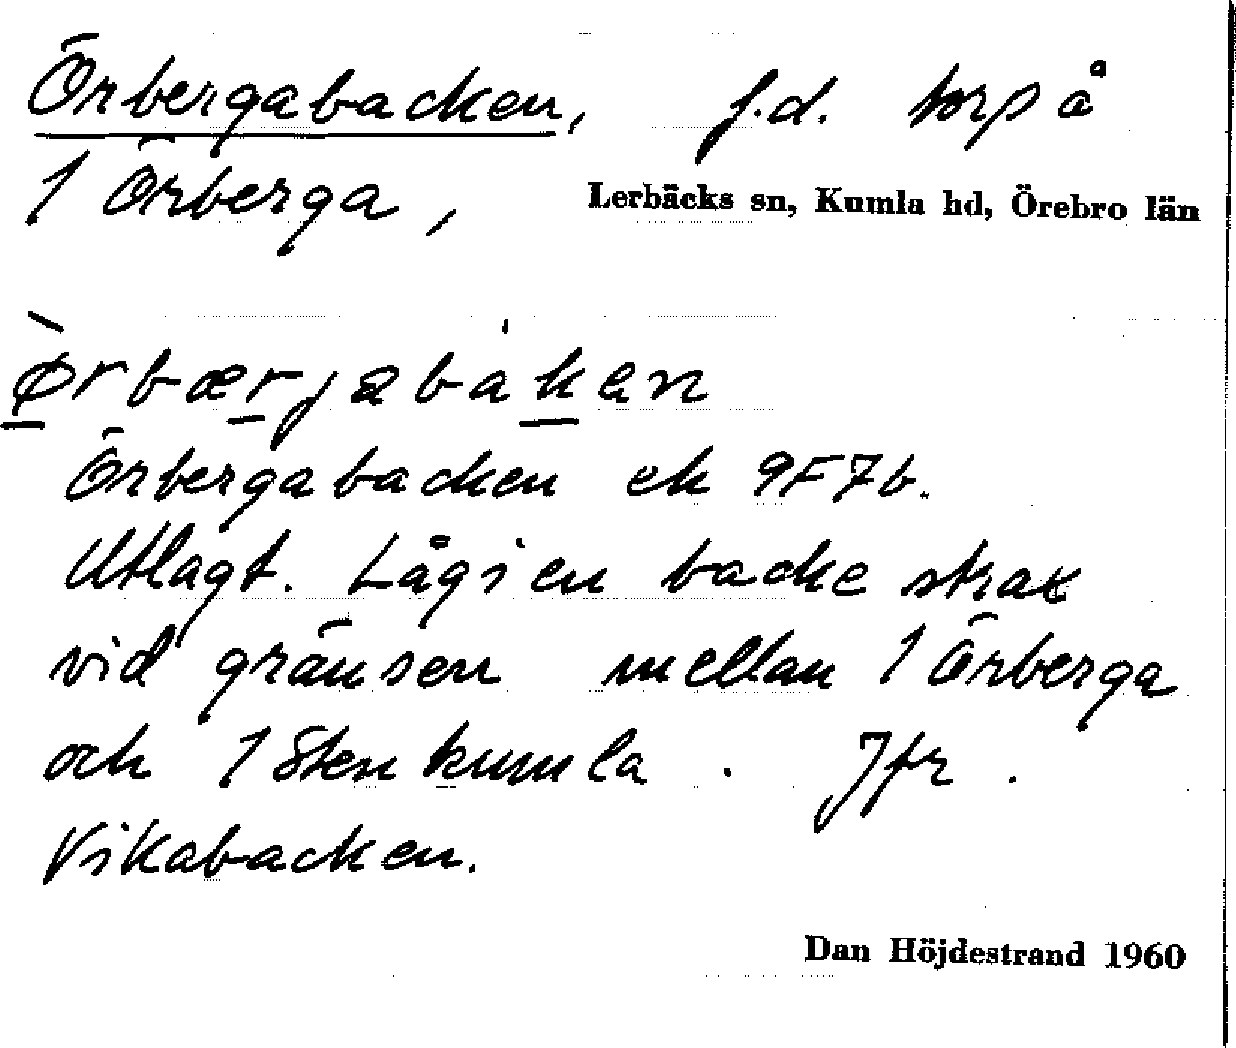 Örbergabacken, f.d. torp å
1 Örberga,
Lerbäcks sn, Kumla hd, Örebro län
ø̀rbærjabákan
Örbergabacken ek 9F7b.
Utlagt. Låg i en backe strax
vid gränsen mellan 1 Örberga
och 1 Stenkumla. Jfr.
Vikabacken.
Dan Höjdestrand 1960